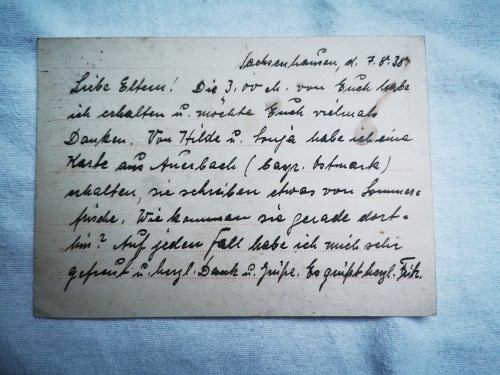 Sachsenhausen, d. 7.8.38.
Liebe Eltern! Die 3.00 M. von Euch habe
ich erhalten u. möchte Euch vielmals
Danken. Von Hilde u. Sonja habe ich eine
Karte aus Auerbach (bayr. Ostmark)
erhalten, sie schreiben etwas von Sommer-
frische. Wie kommen sie gerade dort-
hin? Auf jeden Fall habe ich mich sehr
gefreut u. herzl. Dank u. Grüße. Es grüßt herzl. Fritz.